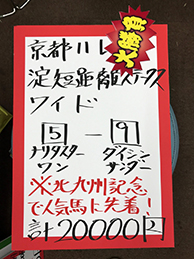 大勝負
京都11R
淀短距離ステークス
ワイド
5-9
ナリタスター ダイシン
ワン サンダー
※北九州記念
で人気馬に先着!
計20000円